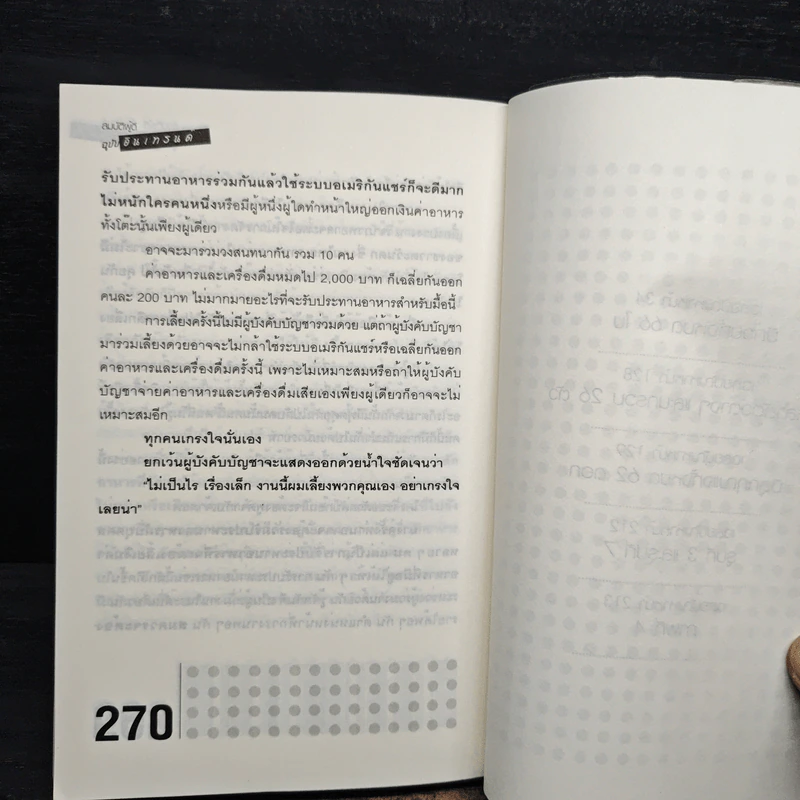 สมบัติผู้ดี
ฉบับ อินเทรนด์
รับประทานอาหารร่วมกันแล้วใช้ระบบอเมริกันแชร์ก็จะดีมาก
ไม่หนักใครคนหนึ่งหรือมีผู้หนึ่งผู้ใดทำหน้าใหญ่ออกเงินค่าอาหาร
ทั้งโต๊ะนั้นเพียงผู้เดียว
อาจจะมาร่วมวงสนทนากัน รวม 10 คน
ค่าอาหารและเครื่องดื่มหมดไป 2,000 บาท ก็เฉลี่ยกันออก
คนละ 200 บาท ไม่มากมายอะไรที่จะรับประทานอาหารสำหรับมื้อนี้
การเลี้ยงครั้งนี้ไม่มีผู้บังคับบัญชาร่วมด้วย แต่ถ้าผู้บังคับบัญชา
มาร่วมเลี้ยงด้วยอาจจะไม่กล้าใช้ระบบอเมริกันแชร์หรือเฉลี่ยกันออก
ค่าอาหารและเครื่องดื่มครั้งนี้ เพราะไม่เหมาะสมหรือถ้าให้ผู้บังคับ
บัญชาจ่ายค่าอาหารและเครื่องดื่มเสียเองเพียงผู้เดียวก็อาจจะไม่
เหมาะสมอีก
ทุกคนเกรงใจนั่นเอง
ยกเว้นผู้บังคับบัญชาจะแสดงออกด้วยน้ำใจชัดเจนว่า
"ไม่เป็นไร เรื่องเล็ก งานนี้ผมเลี้ยงพวกคุณเอง อย่าเกรงใจ
เลยน่า"
270